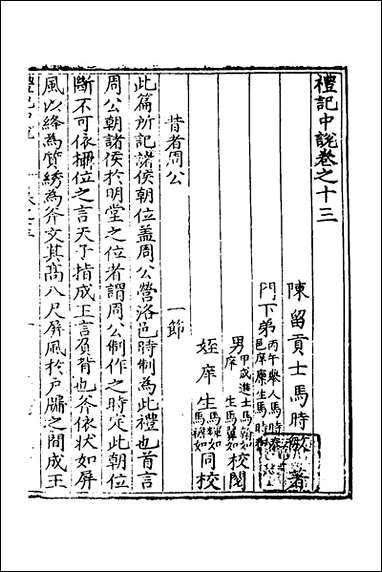 禮記中說卷之十三
陳留貢士馬時敏著
門下弟
丙午舉人馬時
邑庠廩生馬時
男
甲戌進士馬如
庠生馬翼如
校閱
姪庠生
馬如
馬如
同校
昔者周公 一節
此篇所記諸侯朝位盖周公營洛邑時制為此禮也首言
周公朝諸侯於明堂之位者謂周公制作之時定此朝位
斷不可依攝位之言天子指成王言負背也斧依狀如屏
風以絳為質綉為斧文其高八尺屏風於戶牖之間成王